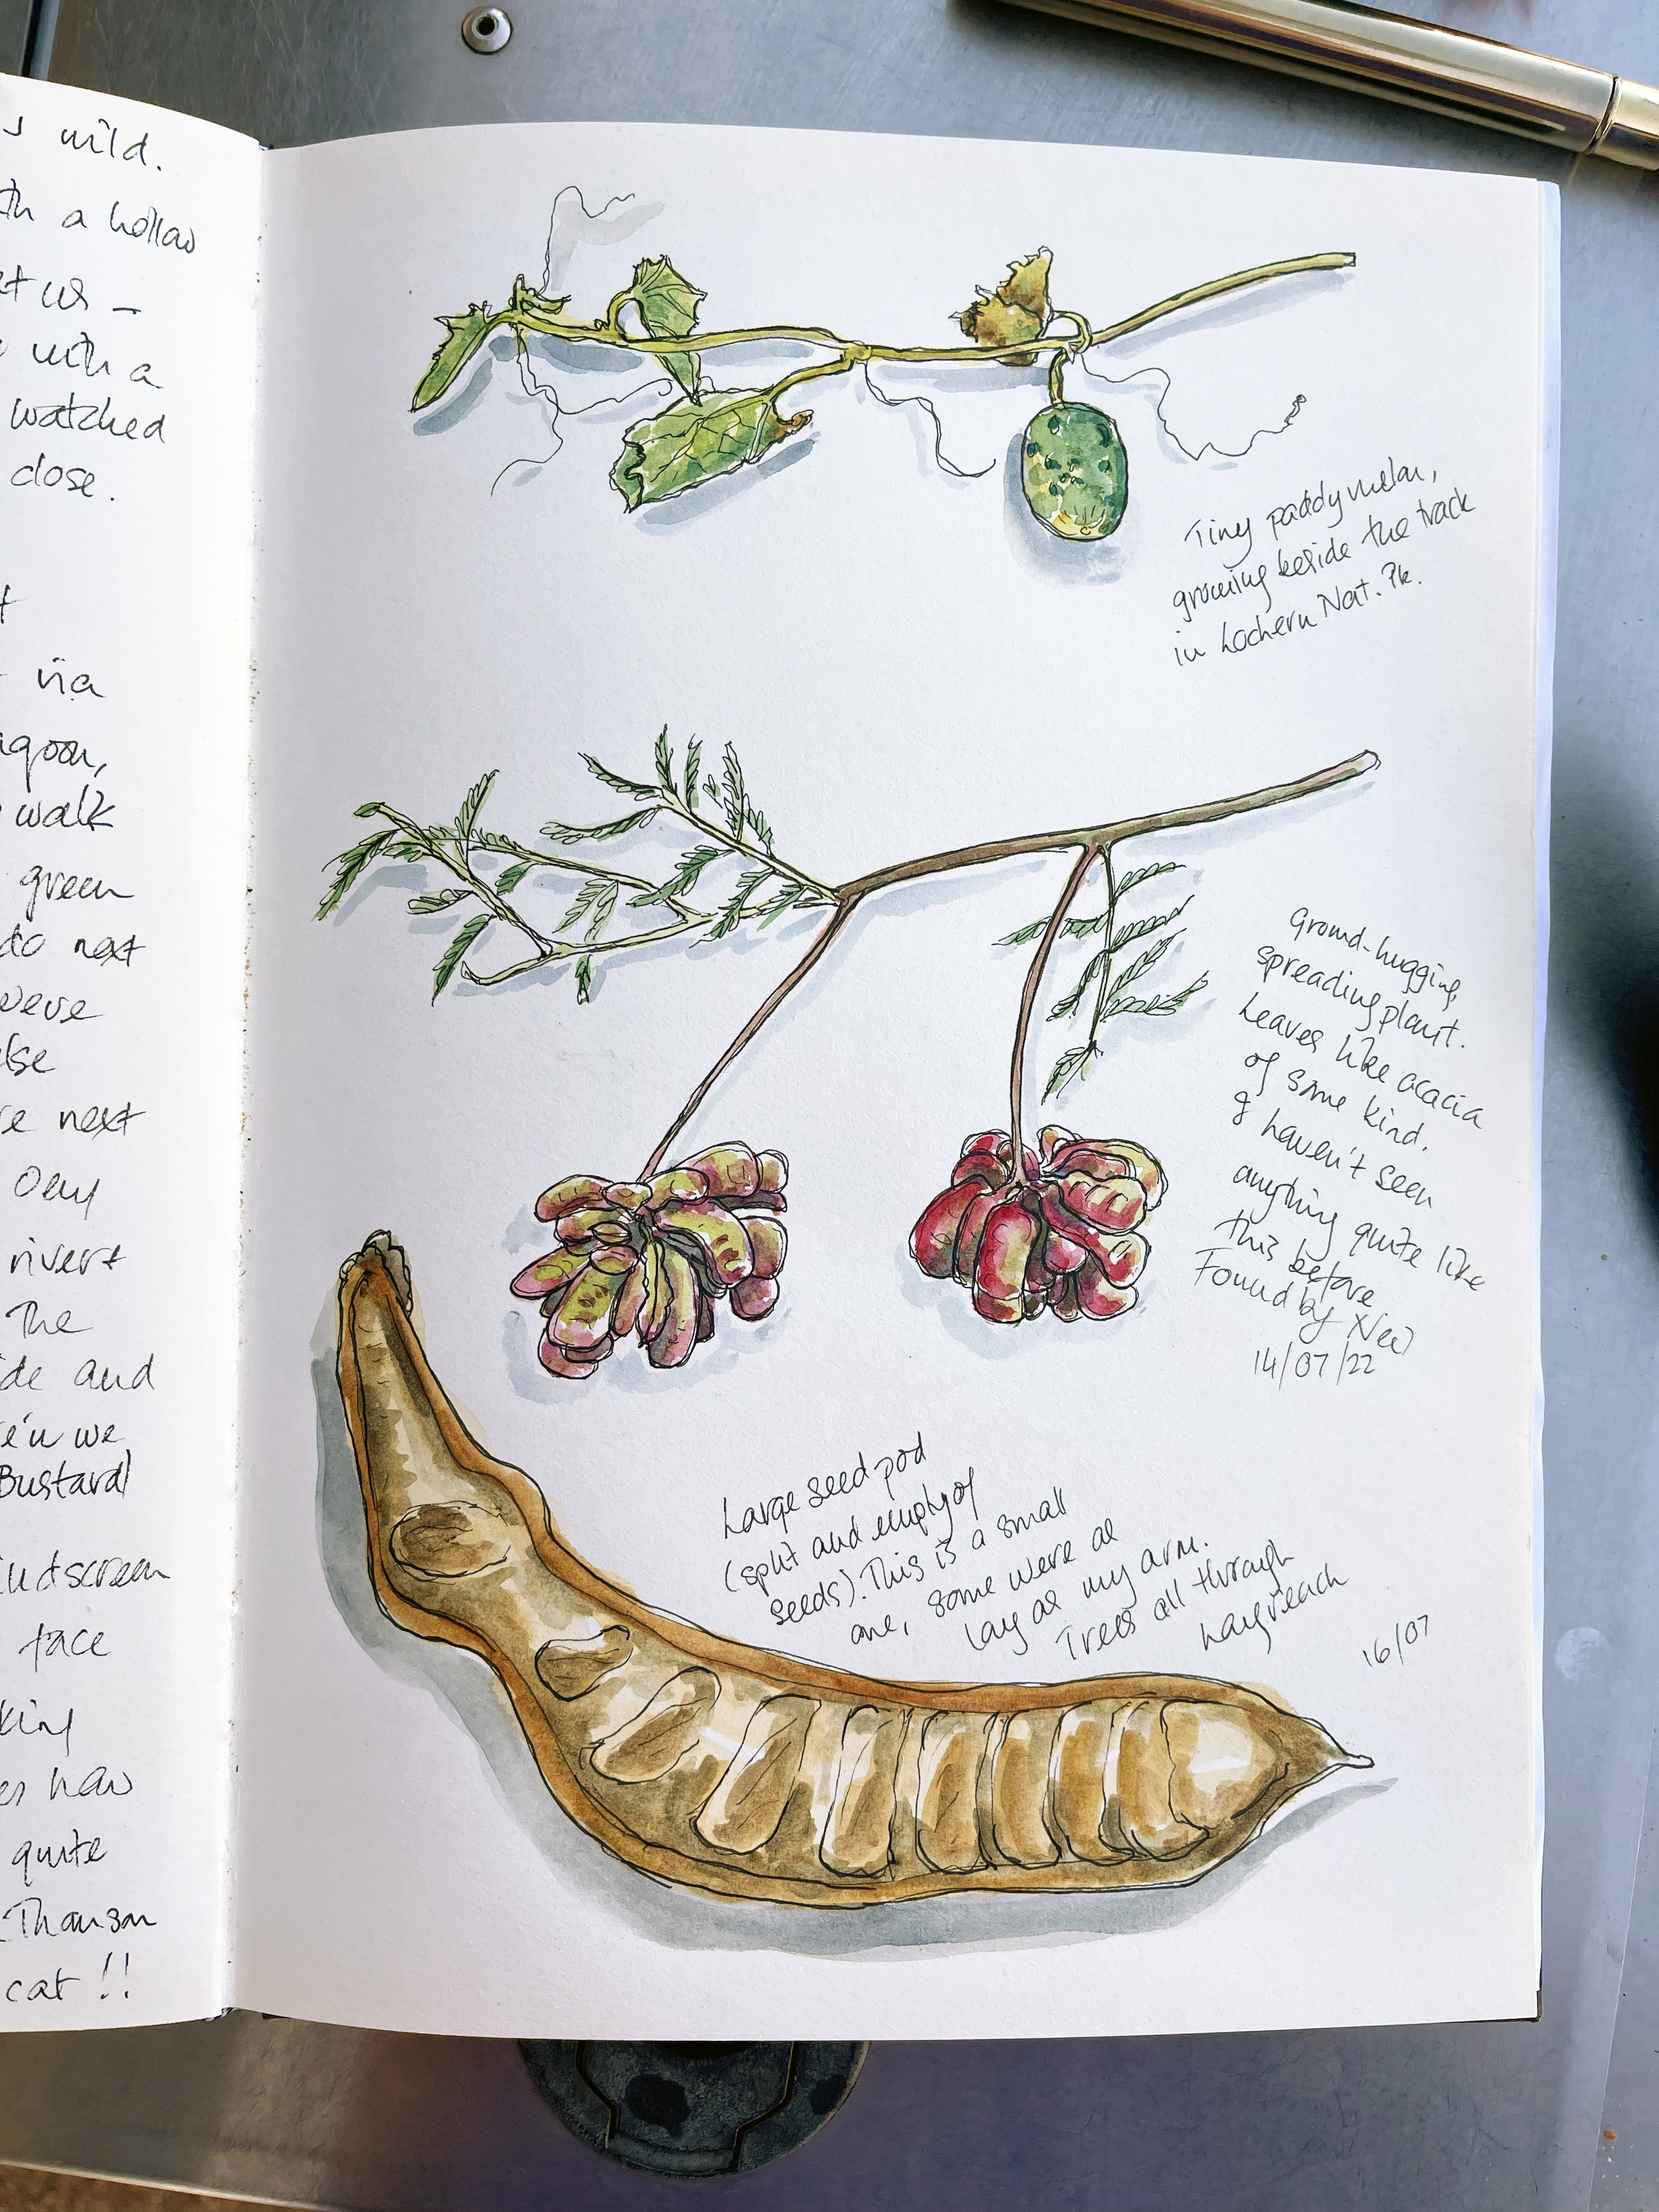 s wild.
th a hollow
at us –
with a
watched
close.
via
agoon,
walk
green
do next
were
else
re next
Oeuy
rivert
The
ide and
we
Bustard
indscreen
face
king
es how
quite
Thomson
cat !!
Tiny paddymelon,
growing beside the track
in Lochern Nat. Pk.
Ground-hugging,
spreading plant.
Leaves like acacia
of some kind.
I haven't seen
anything quite like
this before
Found by Nev
14/07/22
Large seed pod
(split and empty of
seeds). This is a small
one, some were as
long as my arm.
Trees all through
Longreach
16/07